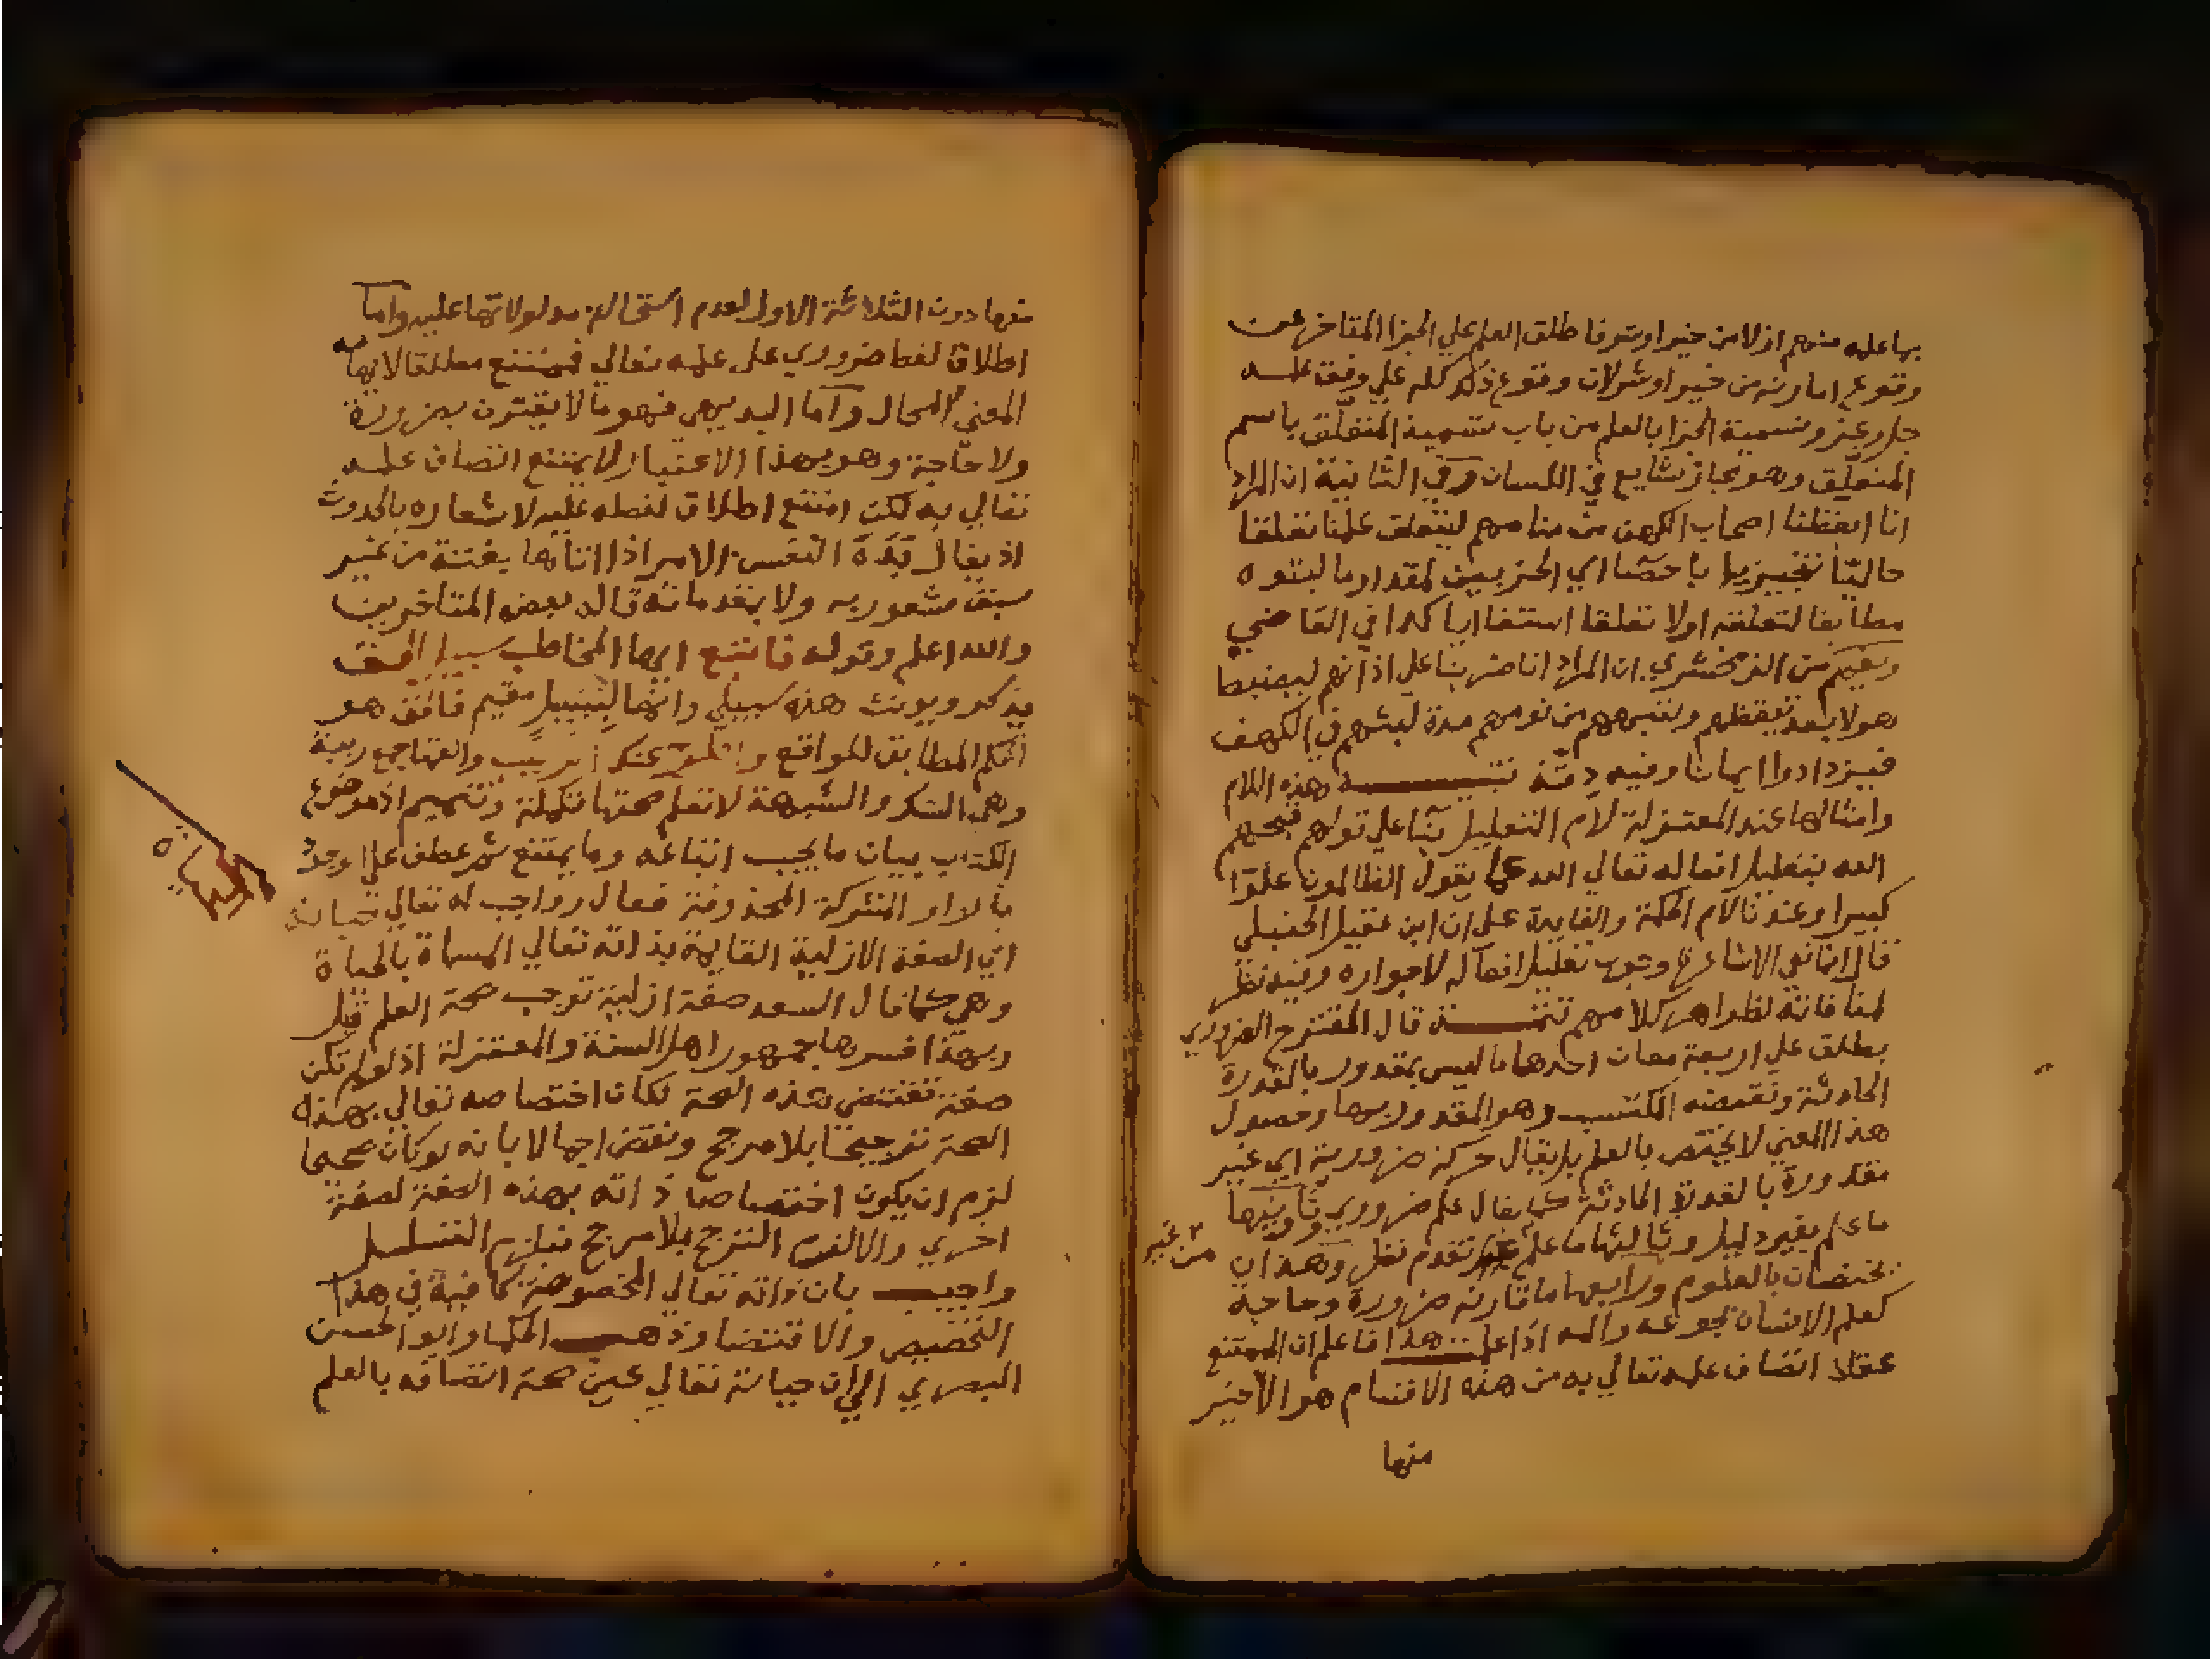 بها علمه منهم ازلا من خير او شر فاطلق العلم علي الجزا المتاخر عن
وقوع امارته من خير او شر لان وقوع ذلك كله علي وفق علمه
جل وعز وتسمية الجزا بالعلم من باب تسمية المتعلق باسم
المتعلق وهو مجاز شايع في اللسان وفي الثانية ان المراد
انا ايقظنا اصحاب الكهف من منامهم ليتعلق علمنا تعلقا
حاليا تنجيزيا باحصا اي الحزبين لمقدار ما لبثوه
مطابقا لتعلقه اولا تعلقا استقباليا كذا في القاضي
وبغيره من الزمخشري ان المراد انا ضربنا علي اذانهم ليضبط
هولا بعد تيقظهم وتنبههم من نومهم مدة لبثهم في الكهف
فيزدادوا ايمانا وفيه دقة تنبيه هذه اللام
وامثالها عند المعتزلة لام التعليل بنا علي قولهم قبحهم
الله بتعليل افعاله تعالي الله عما يقول الظالمون علوا
كبيرا وعندنا لام الحكمة والفايدة علي ان ابن عقيل الحنبلي
قال انما نفي الاشاعرة وجوب تعليل افعاله لا جوازه وفيه نظر
لمنافاته لظواهر كلامهم تتمة قال المقترح الضروري
يطلق علي اربعة معان احدها ما ليس بمقدور بالقدرة
الحادثة ونقيضه المكتسب وهو المقدور بها وحصول
هذا المعني لا يختص بالعلم بل يقال حركة ضرورية اي غير
مقدورة بالقدرة الحادثة كما يقال علم ضروري وثانيها
ما علم بغير دليل وثالثها ما علم من غير تقدم نظر وهذان
يختصان بالعلوم ورابعها ما قارنه ضرورة وحاجة
كعلم الانسان بجوعه والمه اذا علمت هذا فاعلم ان الممتنع
عقلا اتصاف علمه تعالي به من هذه الاقسام هو الاخير
منها
منها دون الثلاثة الاول لعدم استحالة مدلولاتها عليه واما
اطلاق لفظ ضروري علي علمه تعالي فممتنع مطلقا لايهامه
المعني المحال واما البديهي فهو ما لا يقترن بضرورة
ولا حاجة وهو بهذا الاعتبار لا يمتنع اتصاف علمه
تعالي به لكن امتنع اطلاق لفظه عليه لاشعاره بالحدوث
اذ يقال بده النفس الامر اذا اتاها بغتة من غير
سبق شعور به ولا مقدماته قاله بعض المتاخرين
والله اعلم وقوله فاتبع ايها المخاطب سبيل الحق
يذكر ويونث هذه سبيلي وانها لبسبيل مقيم فالحق هو
الحكم المطابق للواقع الريب والفها جمع ريبة
وهي الشك والشبهة لا تعلم صحتها تكملة وتتميم اذ موضوع
الكتاب بيان ما يجب اتباعه وما يمتنع ثم عطف علي وجود
بالواو المشركة المحذوفة فقال وواجب له تعالي حياته
الحياة
اي الصفة الازلية القايمة بذاته تعالي المسماة بالحياة
وهي كما قال السعد صفة ازلية توجب صحة العلم قيل
وبهذا فسرها جمهور اهل السنة والمعتزلة اذ لو لم تكن
صفة تقتضي هذه الصحة لكان اختصاصه تعالي بهذه
الصحة ترجيحا بلا مرجح ونقض اجمالا بانه لو كان صحيحا
لزم ان يكون اختصاص ذاته بهذه الصفة لصفة
اخري والا لزم الترجيح بلا مرجح فيلزم التسلسل
واجيب بان ذاته تعالي المخصوصة كافية في هذا
التخصيص والاقتضا وذهب الحكما وابو الحسن
البصري الي ان حياته تعالي عين صحة اتصافه بالعلم